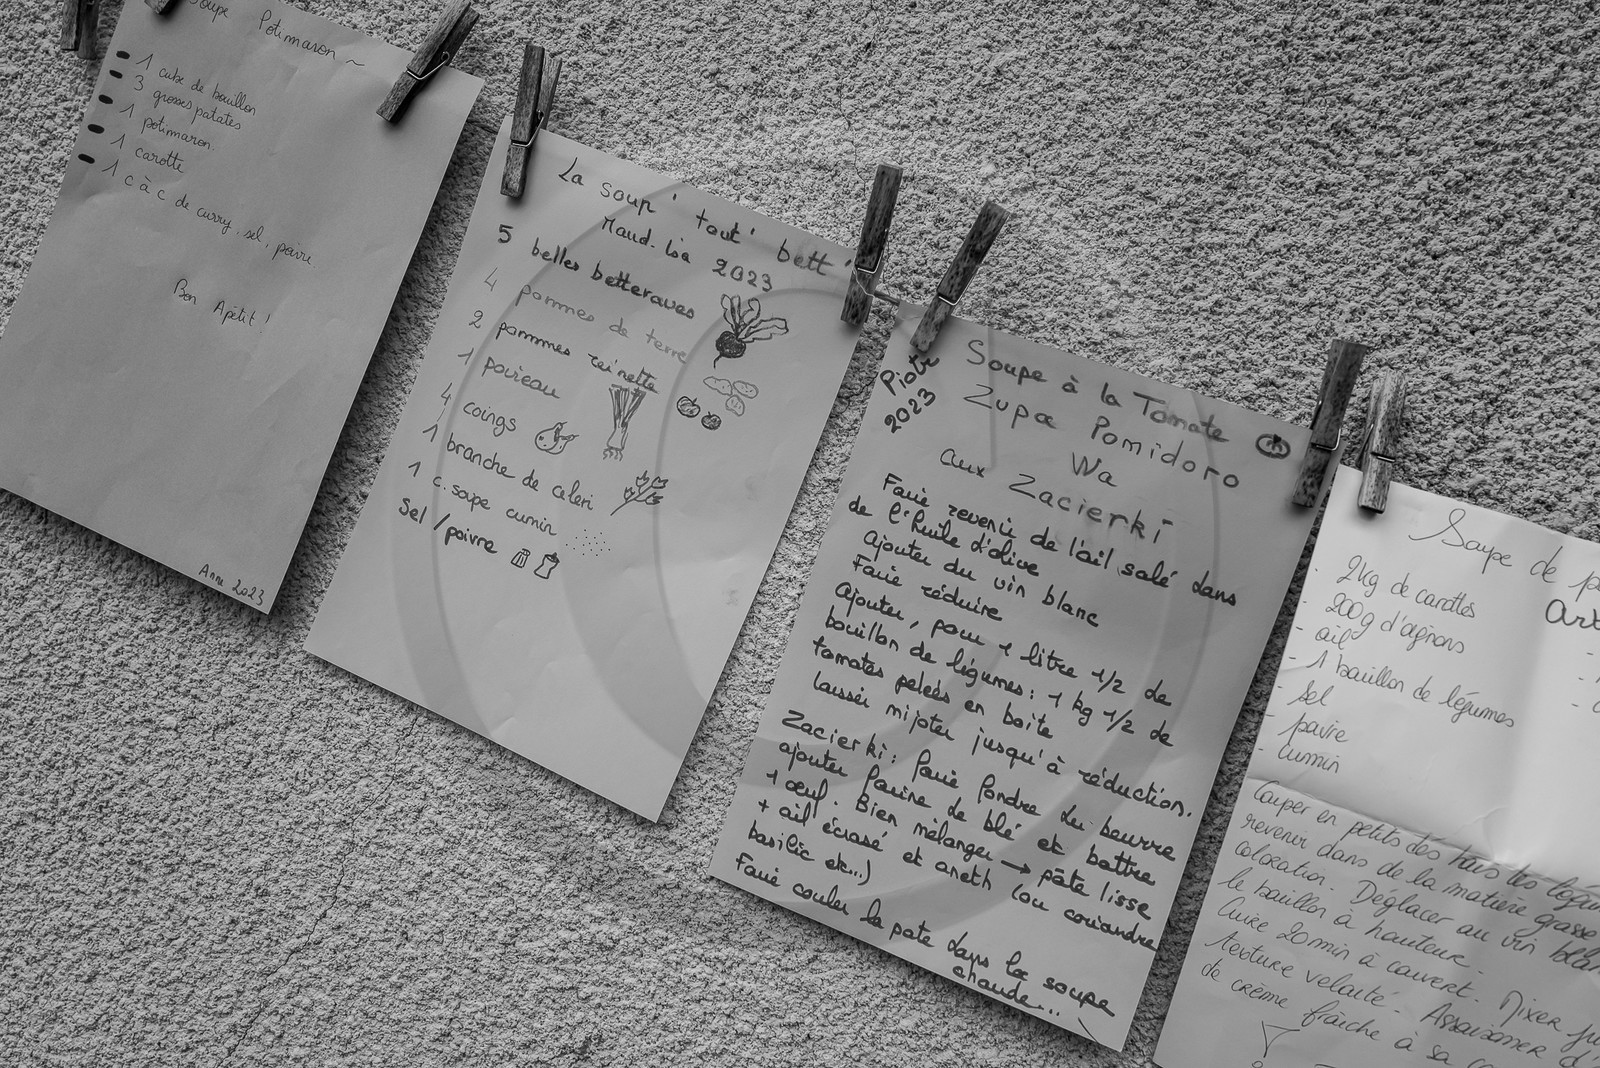 Soupe Potimaron ~
1 cube de bouillon
3 grosses patates
1 potimaron.
1 carotte
1 c à c de curry, sel, poivre.
Bon Apétit !
Anne 2023
La soup' tout' bett'
Maud-Lia 2023
5 belles betteraves
4 pommes de terre
2 pommmes reinette
1 poireau
4 coings
1 branche de celeri
1 c. soupe cumin
Sel / poivre
Piotr
2023
Soupe à la Tomate
Zupa Pomidoro
Wa
aux Zacierki
Faire revenir de l'ail salé dans
de l'huile d'olive
Ajouter du vin blanc
Faire réduire
Ajouter, pour 1 litre 1/2 de
bouillon de légumes : 1 kg 1/2 de
tomates pelées en boite
laisser mijoter jusqu'à réduction.
Zacierki : faire fondre du beurre
ajouter farine de blé et battre
1 œuf. Bien mélanger → pâte lisse
+ ail écrasé et aneth (ou coriandre
basilic etc...)
Faire couler la pate dans la soupe
chaude...
Soupe de
- 2kg de carottes
- 200g d'oignons
- ail
- 1 bouillon de légumes
- sel
- poivre
- cumin
Couper en petits dés tous les
revenir dans de la matière grasse
coloration. Déglacer au vin
le bouillon à hauteur.
Cuire 20min à couvert. Mixer
texture velouté. Assaisonner
de crème fraîche à sa